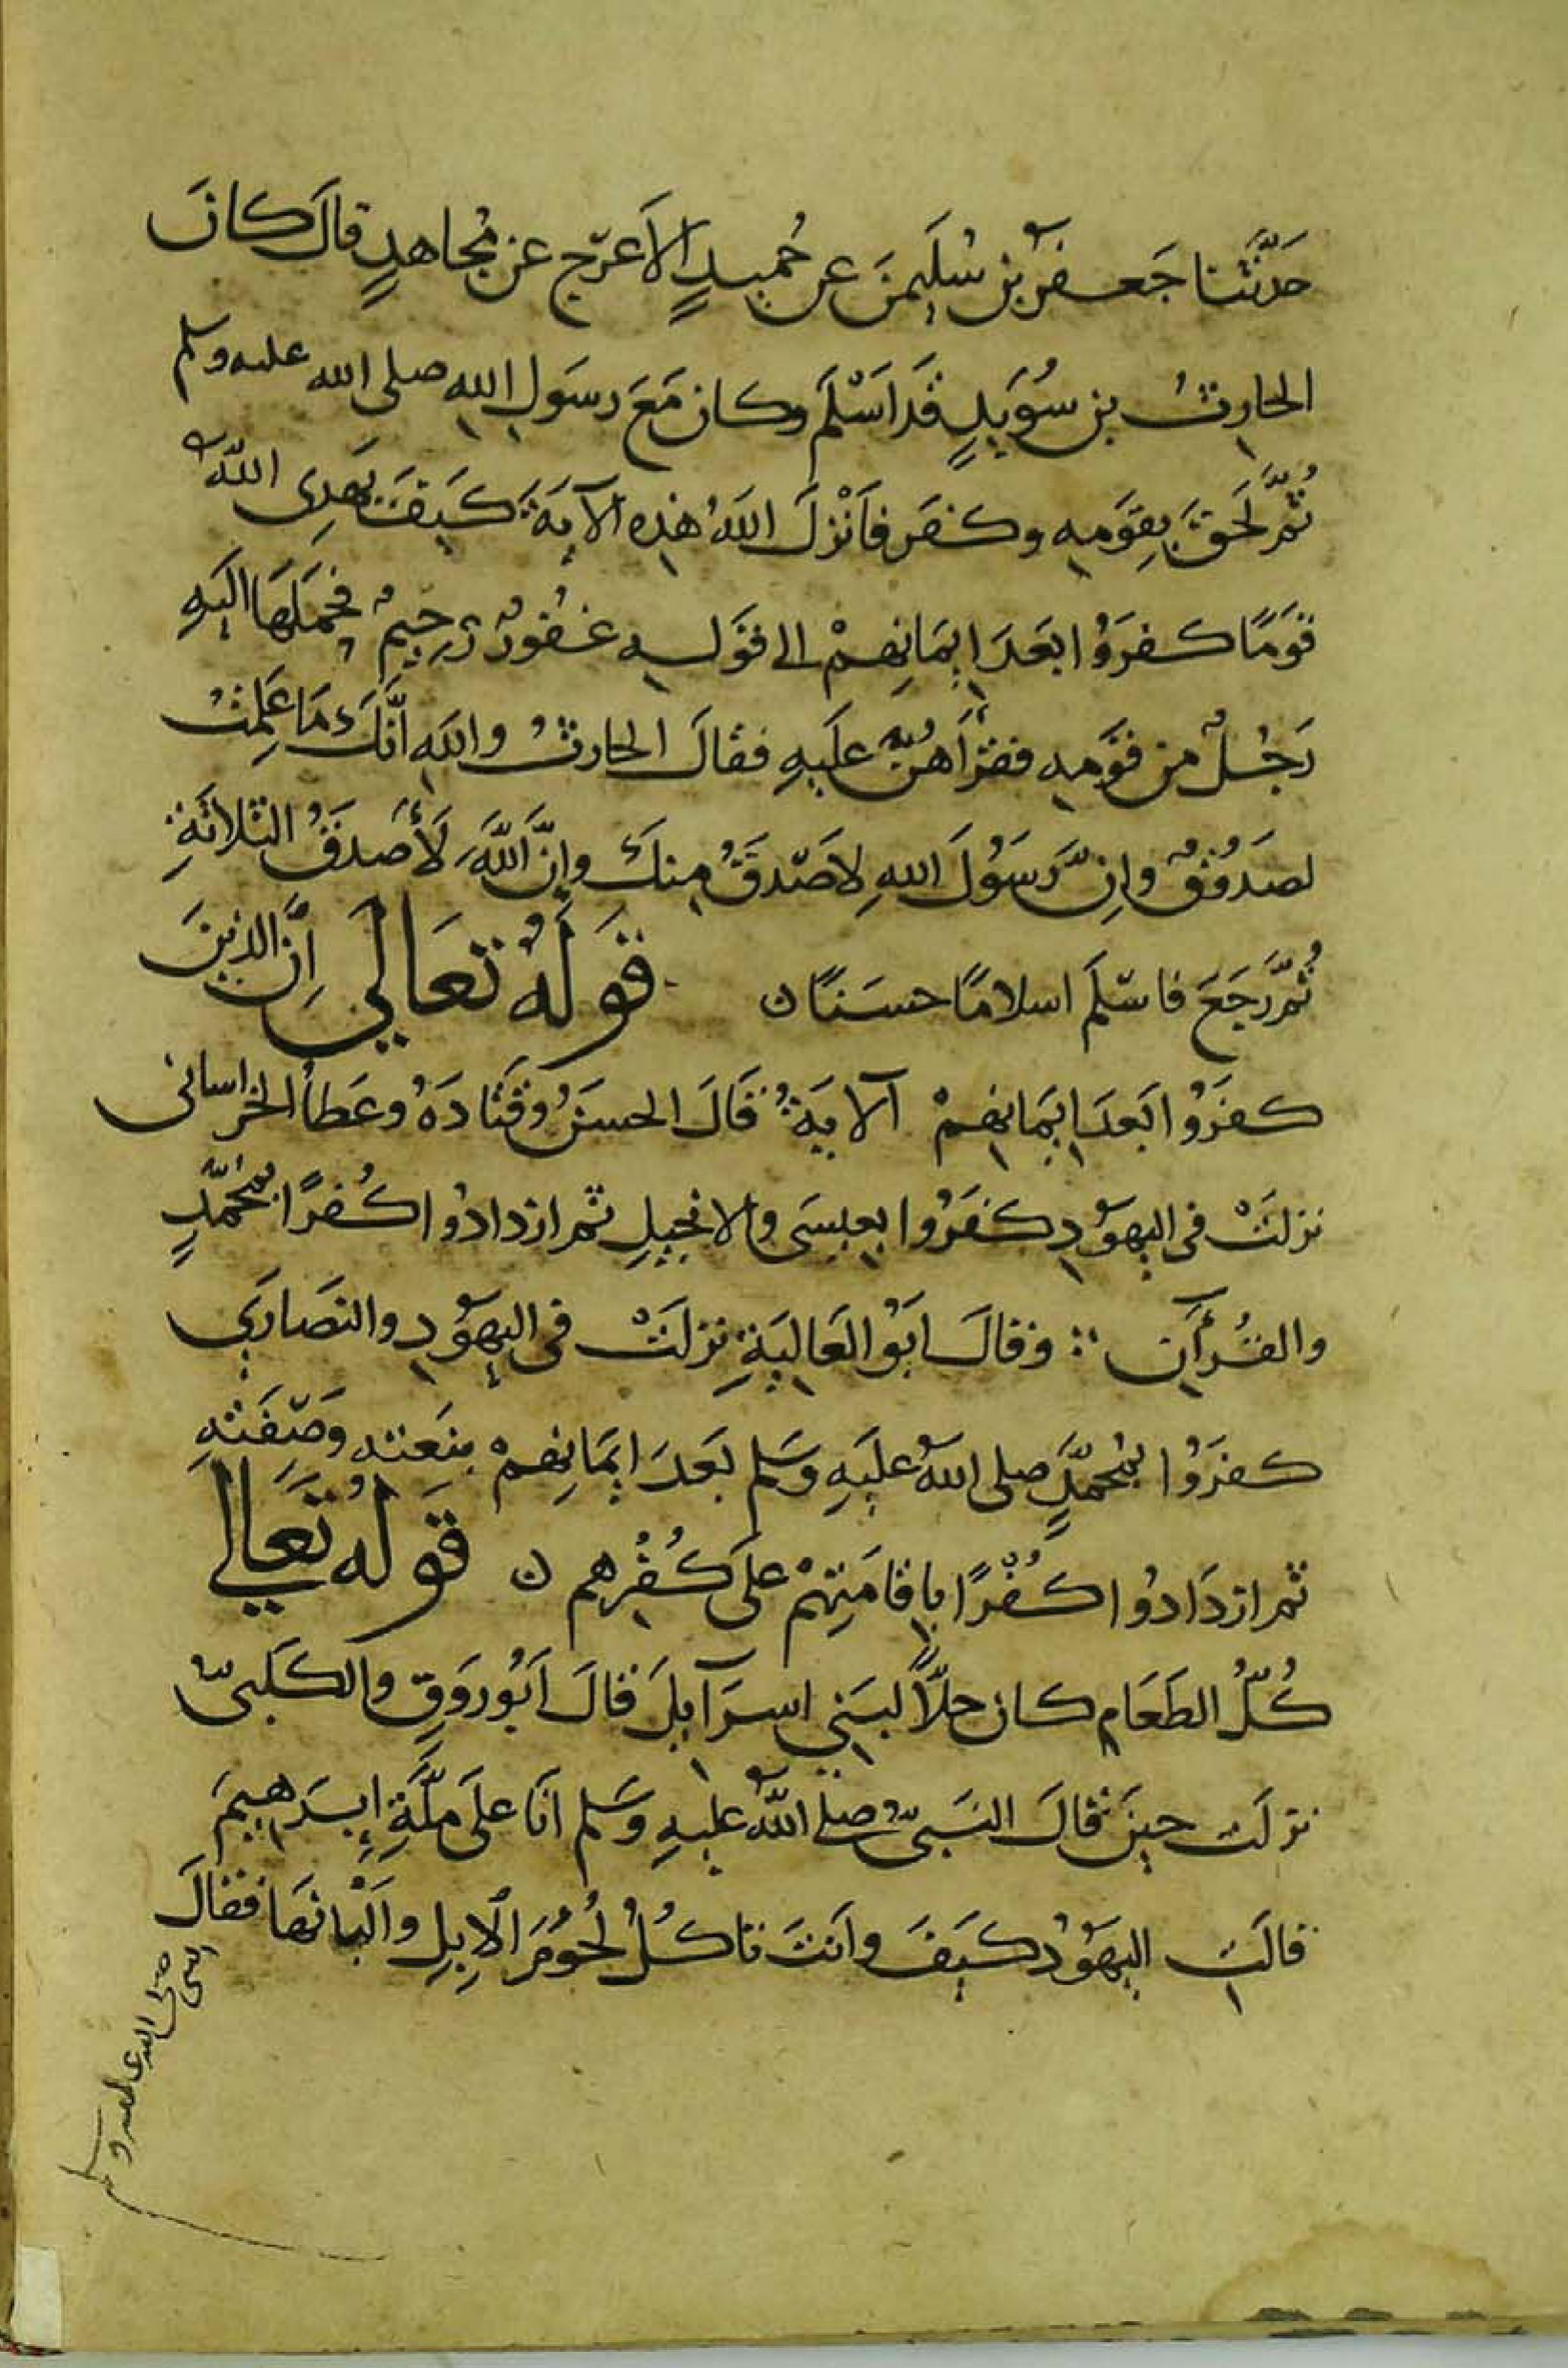 حَدَّثنا جَعفرُ بن سُلَيمنَ عن حُميدٍ الأَعرَج عن مُجاهدٍ قالَ كانَ
الحارِثُ بن سُوَيدٍ قَد اَسْلَمَ وكان مَعَ رسَولِ اللهِ صلى الله عليه وسلم
ثُمَّ لَحقَ بِقَومِهِ وكفَر فأَنْزلَ اللهُ هٰذِه الآيَةَ كَيفَ يَهدِى اللهُ
قَومًا كفرَوُا بَعدَ اِيمَانِهِمْ الى قَولِهِ غفُورٌ رَحِيمٌ فحَمَلَهَا اِلَيهِ
رَجُلٌ مِن قَومِهِ فقَرأَهُنَّ عَلَيهِ فقالَ الحارثُ واللهِ اَنَّكَ مَا عَلِمتُ
لصَدُوقٌ وإنَّ رَسَوُلَ اللهِ لاَصَدقَ مِنكَ وإنَّ اللهَ لَأَصدَقُ الثلاثَةِ
ثُمَّ رَجَعَ فاسلَمَ اسلامًا حسَنًا ن قَولُهُ تَعَالَى اِنَّ الذينَ
كفرَوُا بَعدَ اِيمَانِهِمْ الآيَةُ قَالَ الحسَنُ وقَتَادَةُ وعَطاءُ الخراسانى
نزلَتْ فى اليهَوُدِ كفَرُوا بِعِيسَى والانجيلِ ثم ازدادُوا كُفرًا بمُحمَّدٍ
والقُرأٰنِ ∴ وقالَ ابَوُ العَالِيَةِ نزلَتْ فى اليهَوُدِ والنصَارَى
كفرَوُا بمُحمَّدٍ صلى اللهُ عَلَيهِ وَسَلم بَعدَ ايمَانِهِمْ بنَعتِهِ وَصِفَتِهِ
ثم ازدَادُوا كُفْرًا بِاِقامَتِهِمْ على كُفْرِهم ن قَولُهُ تَعَالى
كُلُّ الطعَامِ كان حلاًّ لبَنِي اسرَآيلَ قالَ اَبُو رَوَقٍ والكَلبىُّ
نزلَت حينَ قالَ النَبىُّ صلى اللهُ عليهِ وَسَلم انَا على مِلَّةِ إبرَهِيمَ
قالَتِ اليهَوُدُ كيَفَ وأنتَ تاكُلُ لُحُومَ الإبِلِ وأَلْبانهَا فقالَ
النبى صلى الله عليه وسلم